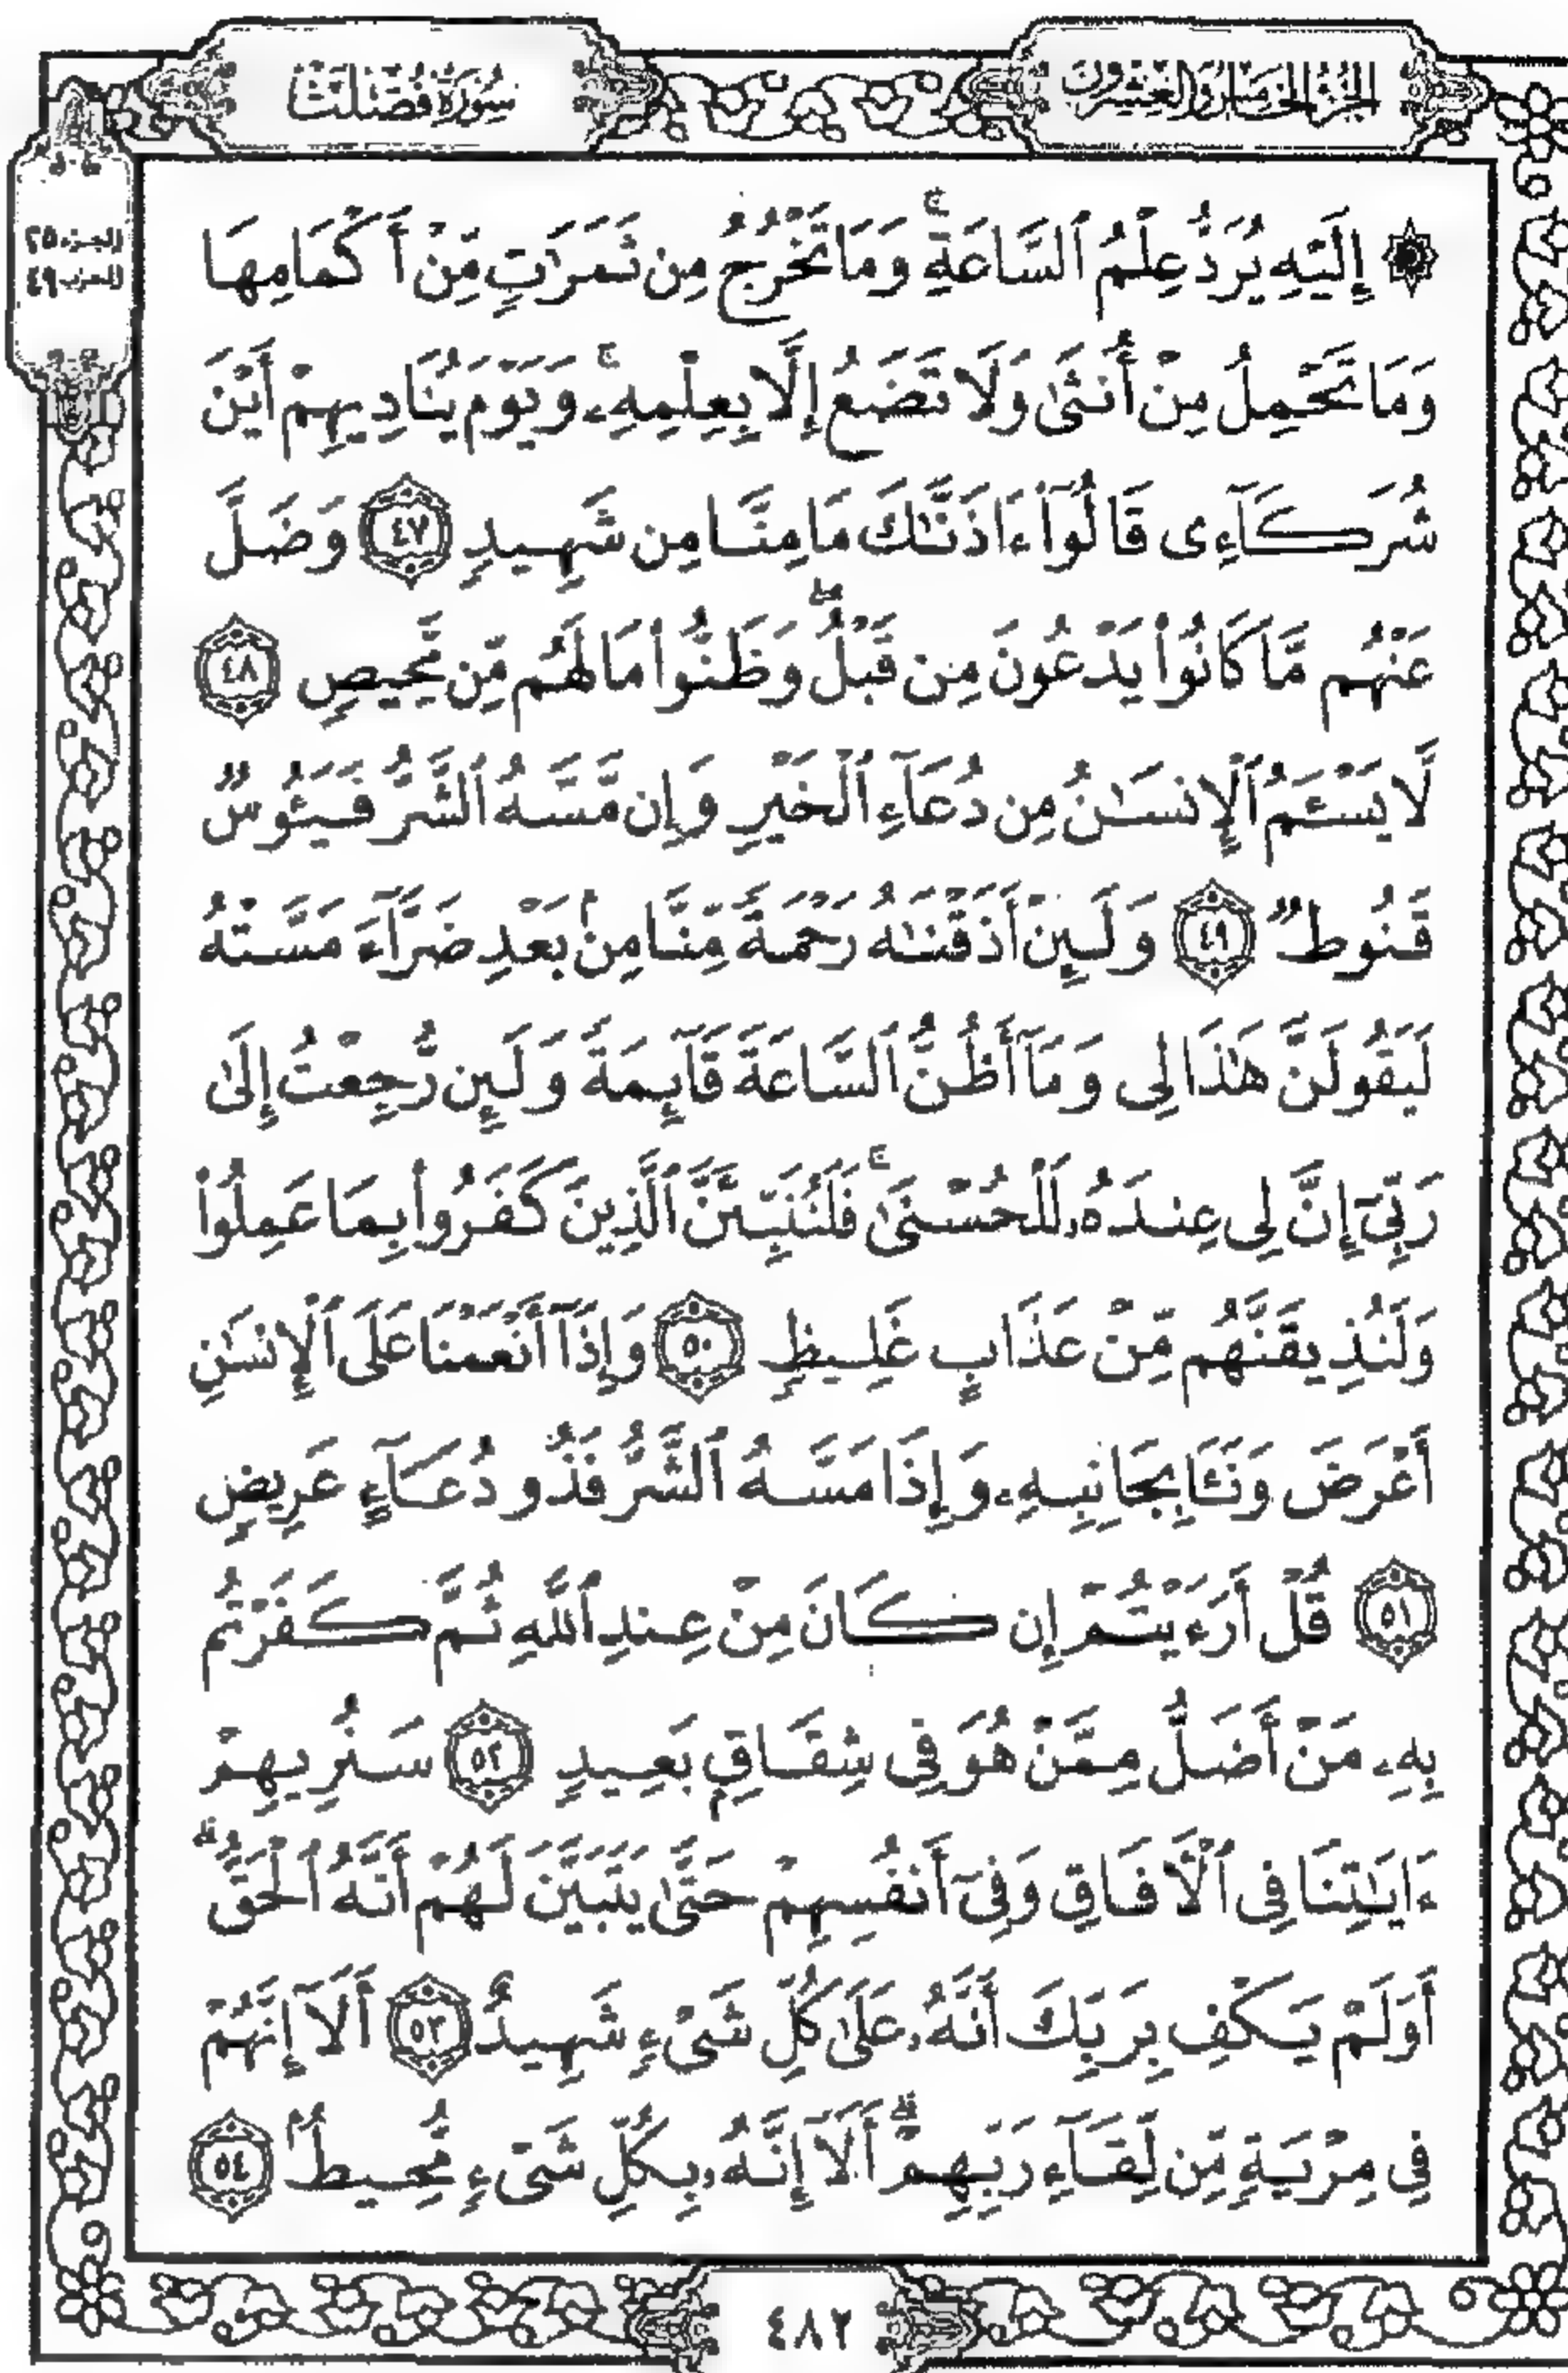 الجزء الخامس والعشرون
سورة فصلت
الجزء ٢٥
الحزب ٤٩
۞ إِلَيْهِ يُرَدُّ عِلْمُ ٱلسَّاعَةِ ۚ وَمَا تَخْرُجُ مِن ثَمَرَٰتٍ مِّنْ أَكْمَامِهَا
وَمَا تَحْمِلُ مِنْ أُنثَىٰ وَلَا تَضَعُ إِلَّا بِعِلْمِهِۦ ۚ وَيَوْمَ يُنَادِيهِمْ أَيْنَ
شُرَكَآءِى قَالُوٓا۟ ءَاذَنَّٰكَ مَا مِنَّا مِن شَهِيدٍ ٤٧ وَضَلَّ
عَنْهُم مَّا كَانُوا۟ يَدْعُونَ مِن قَبْلُ ۖ وَظَنُّوا۟ مَا لَهُم مِّن مَّحِيصٍ ٤٨
لَّا يَسْـَٔمُ ٱلْإِنسَٰنُ مِن دُعَآءِ ٱلْخَيْرِ وَإِن مَّسَّهُ ٱلشَّرُّ فَيَـُٔوسٌ
قَنُوطٌ ٤٩ وَلَئِنْ أَذَقْنَٰهُ رَحْمَةً مِّنَّا مِنۢ بَعْدِ ضَرَّآءَ مَسَّتْهُ
لَيَقُولَنَّ هَٰذَا لِى وَمَآ أَظُنُّ ٱلسَّاعَةَ قَآئِمَةً وَلَئِن رُّجِعْتُ إِلَىٰ
رَبِّىٓ إِنَّ لِى عِندَهُۥ لَلْحُسْنَىٰ ۚ فَلَنُنَبِّئَنَّ ٱلَّذِينَ كَفَرُوا۟ بِمَا عَمِلُوا۟
وَلَنُذِيقَنَّهُم مِّنْ عَذَابٍ غَلِيظٍ ٥٠ وَإِذَآ أَنْعَمْنَا عَلَى ٱلْإِنسَٰنِ
أَعْرَضَ وَنَـَٔا بِجَانِبِهِۦ وَإِذَا مَسَّهُ ٱلشَّرُّ فَذُو دُعَآءٍ عَرِيضٍ
٥١ قُلْ أَرَءَيْتُمْ إِن كَانَ مِنْ عِندِ ٱللَّهِ ثُمَّ كَفَرْتُم
بِهِۦ مَنْ أَضَلُّ مِمَّنْ هُوَ فِى شِقَاقٍۭ بَعِيدٍ ٥٢ سَنُرِيهِمْ
ءَايَٰتِنَا فِى ٱلْءَافَاقِ وَفِىٓ أَنفُسِهِمْ حَتَّىٰ يَتَبَيَّنَ لَهُمْ أَنَّهُ ٱلْحَقُّ ۗ
أَوَلَمْ يَكْفِ بِرَبِّكَ أَنَّهُۥ عَلَىٰ كُلِّ شَىْءٍ شَهِيدٌ ٥٣ أَلَآ إِنَّهُمْ
فِى مِرْيَةٍ مِّن لِّقَآءِ رَبِّهِمْ ۗ أَلَآ إِنَّهُۥ بِكُلِّ شَىْءٍ مُّحِيطٌۢ ٥٤
٤٨٢